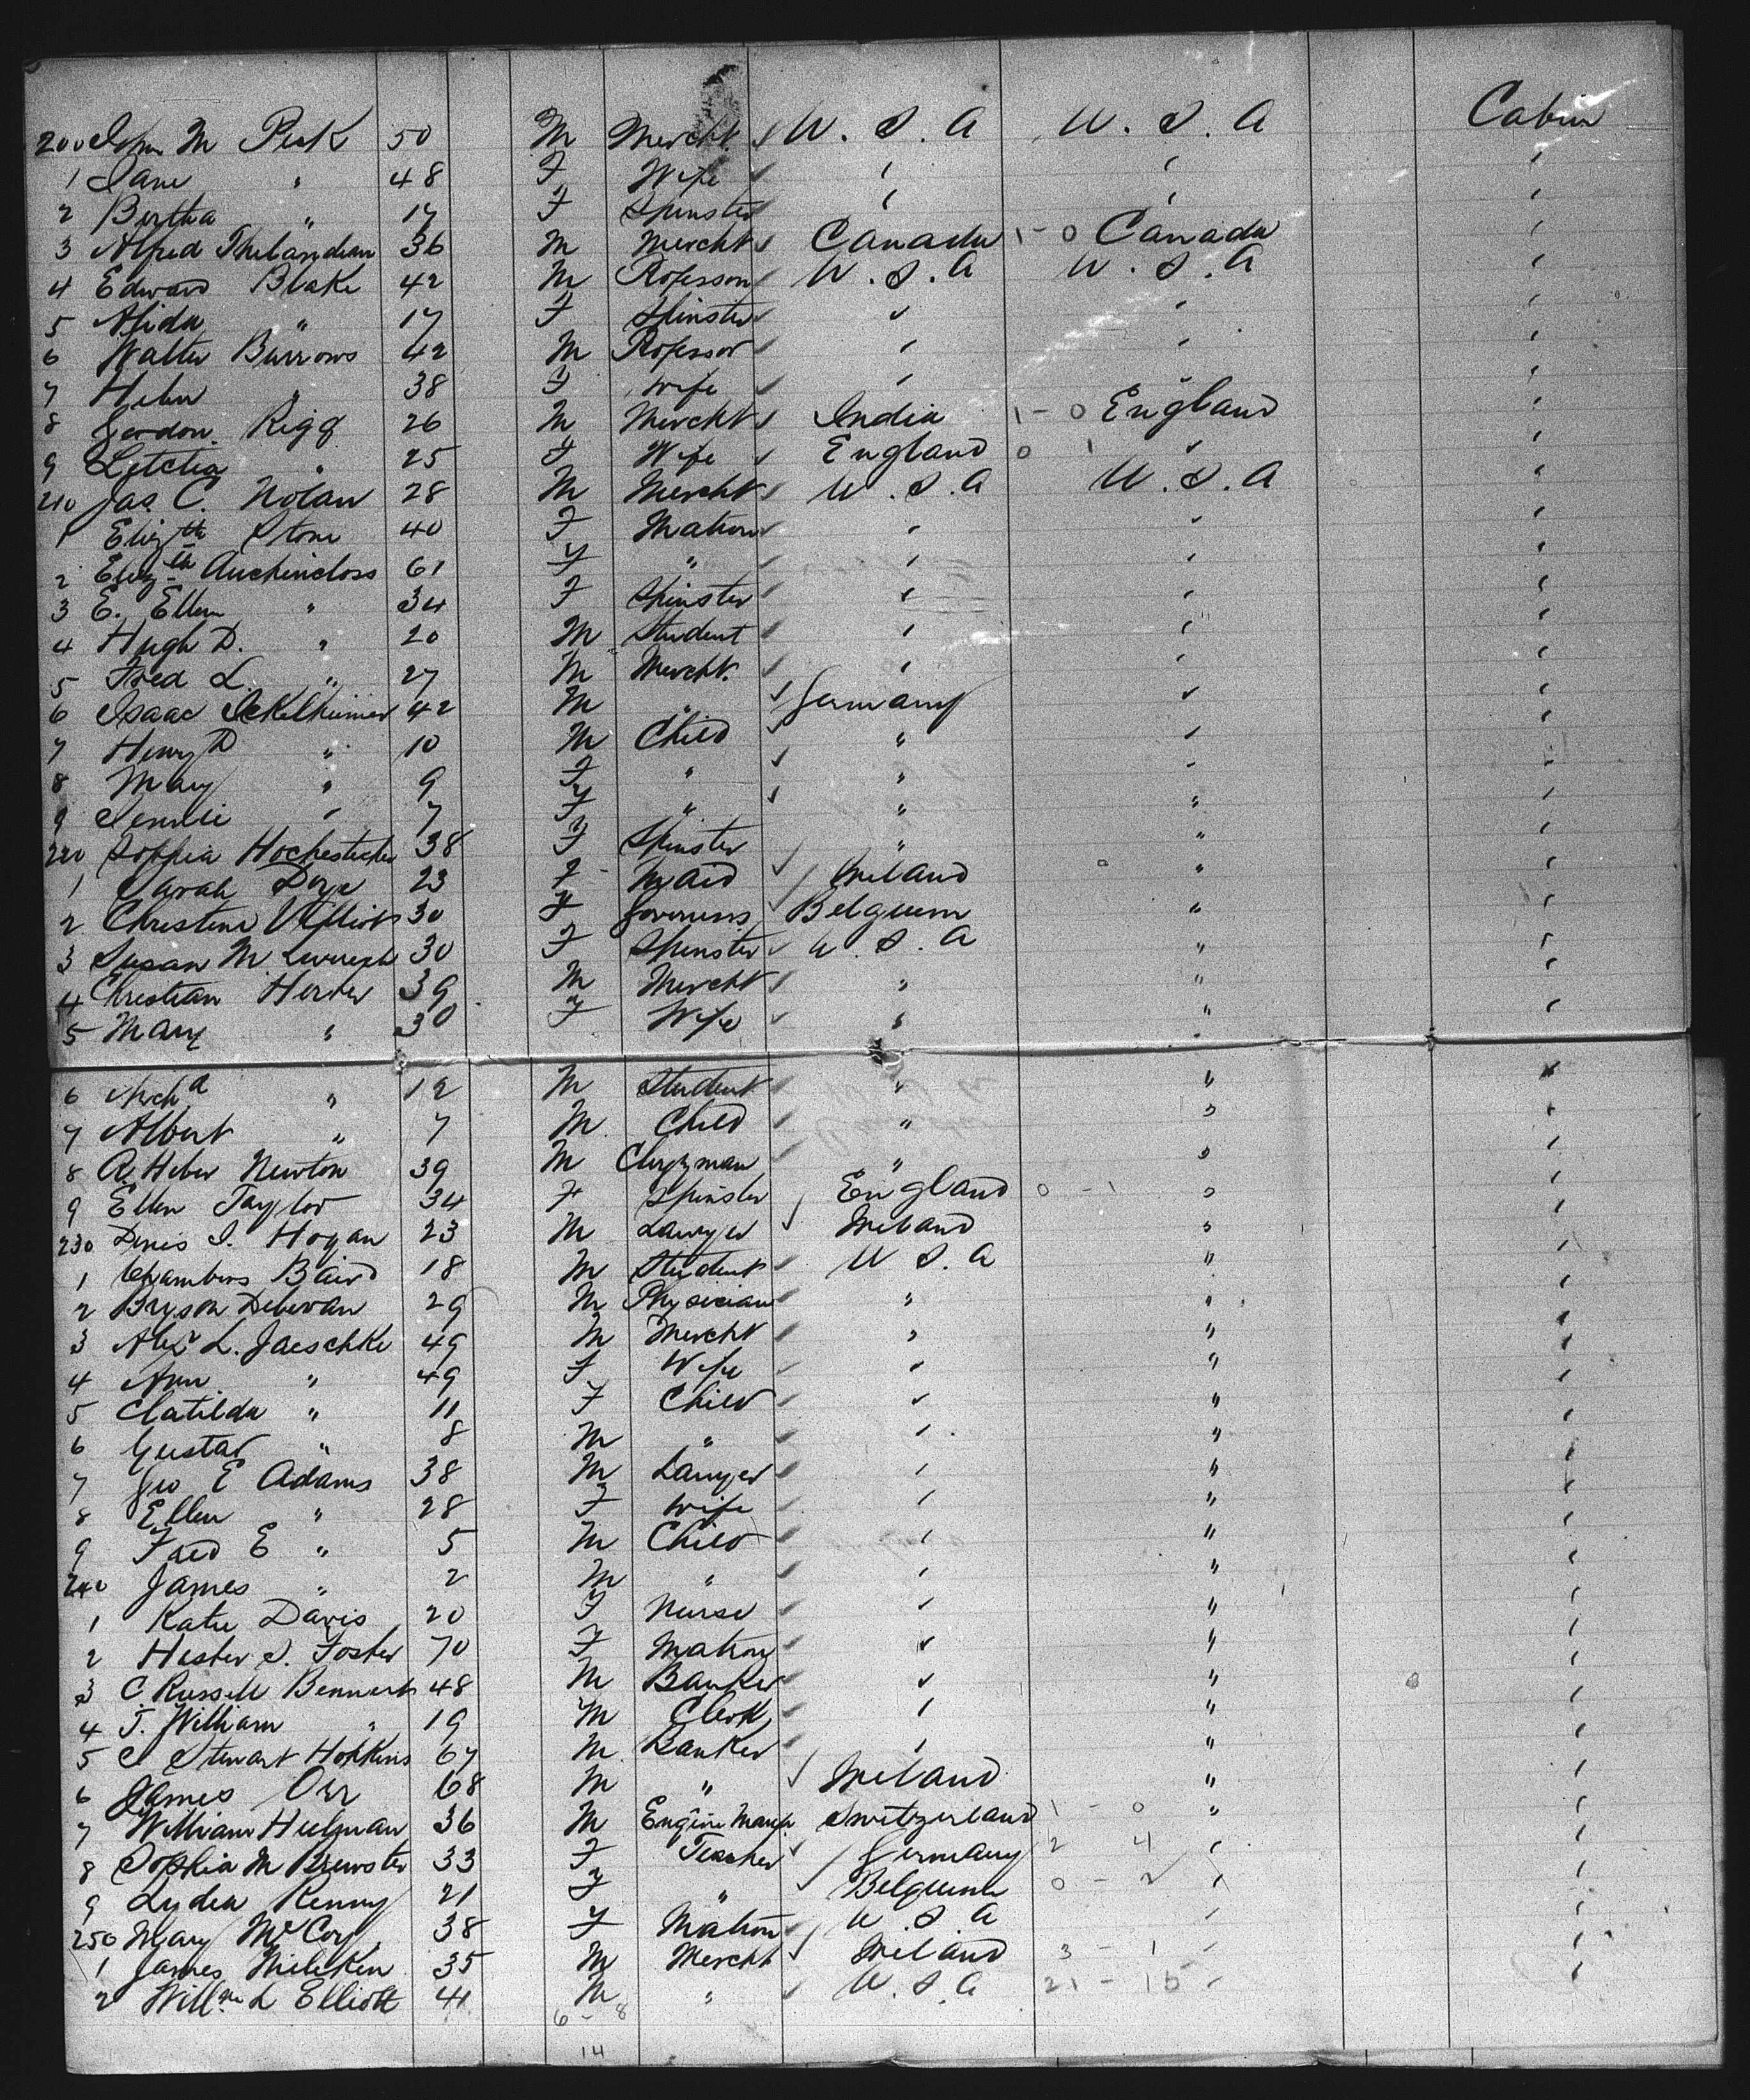 200 John M Peck 50 M Mercht. ✓ U. S. A U. S. A Cabin
1 Jane " 48 F Wife ✓ " " "
2 Bertha " 17 F Spinster " " "
3 Alfred 36 M Mercht ✓ Canada 1 - 0 Canada "
4 Edward Blake 42 M Professor ✓ U. S. A U. S. A "
5 Alida " 17 F Spinster ✓ " " "
6 Walter Burrows 42 M Professor ✓ " " "
7 Helen " 38 F Wife ✓ " " "
8 Gordon Rigg 26 M Mercht ✓ India 1 - 0 England "
9 Letitia " 25 F Wife ✓ England 0 1 " "
210 Jas C. Nolan 28 M Mercht ✓ U. S. A U. S. A "
1 Elizth Stone 40 F Matron ✓ " " "
2 Elizth Auchincloss 61 F " ✓ " " "
3 E. Ellen " 34 F Spinster ✓ " " "
4 Hugh D. " 20 M Student ✓ " " "
5 Fred L. " 27 M Mercht. ✓ " " "
6 Isaac Ickelheimer 42 M " ✓ Germany " "
7 Henry D " 10 M Child ✓ " " "
8 Mary " 9 F " ✓ " " "
9 Jennie " 7 F " ✓ " " "
220 Sophia 38 F Spinster " " "
1 Sarah 23 F Maid ✓ Ireland " "
2 Christine 30 F Governess ✓ Belgium " "
3 Susan M 30 F Spinster ✓ U. S. A " "
4 Christian Herter 39 M Mercht ✓ " " "
5 Mary " 30 F Wife ✓ " " "
6 Archd " 12 M Student ✓ " " "
7 Albert " 7 M Child ✓ " " "
8 R. Heber Newton 39 M Clergyman ✓ " " "
9 Ellen Taylor 34 F Spinster ✓ England 0 - 1 " "
230 Denis J. Hogan 23 M Lawyer ✓ Ireland " "
1 Chambers Baird 18 M Student ✓ U S. A " "
2 Bryson Delevan 29 M Physician ✓ " " "
3 Alexr L. Jaeschke 49 M Mercht ✓ " " "
4 Ann " 49 F Wife ✓ " " "
5 Clatilda " 11 F Child ✓ " " "
6 Gustav " 8 M " ✓ " " "
7 Geo E Adams 38 M Lawyer ✓ " " "
8 Ellen " 28 F Wife ✓ " " "
9 Fred E " 5 M Child ✓ " " "
240 James " 2 M " ✓ " " "
1 Katie Davis 20 F Nurse ✓ " " "
2 Hester J. Foster 70 F Matron ✓ " " "
3 C. Russell Bennett 48 M Banker ✓ " " "
4 J. William " 19 M Clerk ✓ " " "
5 J Stewart Hopkins 67 M Banker " " "
6 James Orr 68 M " ✓ Ireland " "
7 William 36 M Engine Switzerland 1 - 0 " "
8 Sophia M Brewster 33 F Teacher ✓ Germany 2 4 " "
9 Lydia Kenny 21 F " ✓ Belgium 0 - 2 " "
250 Mary McCoy 38 F Matron ✓ U. S. A " "
1 James Milliken 35 M Mercht ✓ Ireland 3 - 1 " "
2 Willm L Elliott 41 M " ✓ U. S. A 21 - 15 " "
6 - 8
14